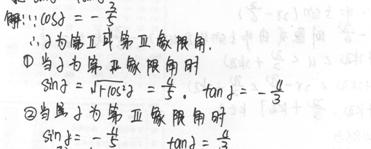 解:∵cosα = -3/5
∴α为第Ⅱ或第Ⅲ象限角.
①当α为第Ⅱ象限角时
sinα = √1-cos²α = 4/5. tanα = -4/3
②当α为第Ⅲ象限角时
sinα = -4/5 tanα = 4/3